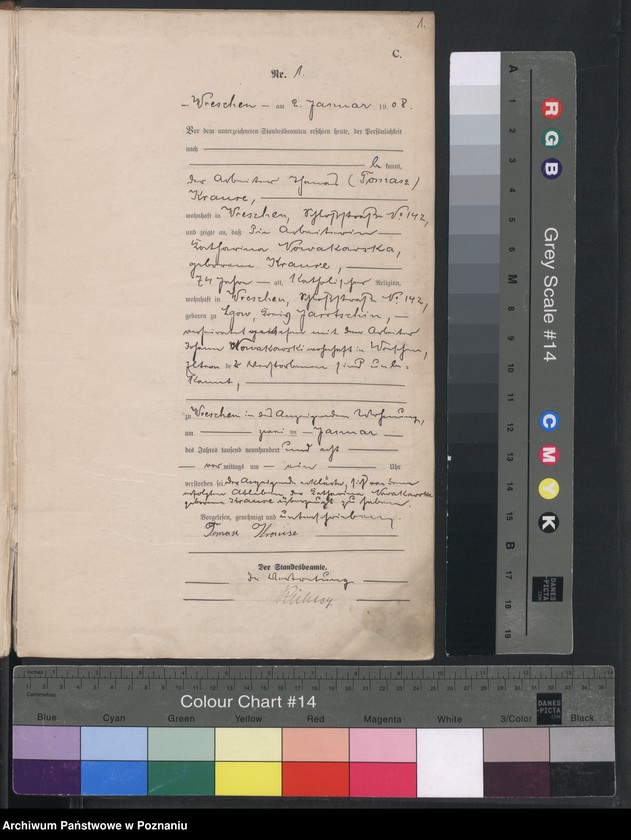 1.
C.
Nr. 1.
Wreschen am 2. Januar 1908.
Vor dem unterzeichneten Standesbeamten erschien heute, der Persönlichkeit
nach
be kannt,
der Arbeiter Thomas (Tomasz)
Krause,
wohnhaft in Wreschen, Schloßstraße No 142,
und zeigte an, daß die Arbeiterin
Katharina Nowakowska,
geborene Krause,
74 Jahre alt, Katholischer Religion,
wohnhaft in Wreschen, Schloßstraße No 142,
geboren zu Lgow, Kreis Jarotschin,
verheiratet gewesen mit dem Arbeiter
Johann Nowakowski wohnhaft in Wreschen,
Eltern der Verstorbenen sind unbe-
kannt,
zu Wreschen in des Anzeigenden Wohnung,
am zwei ten Januar
des Jahres tausend neunhundert und acht
vor mittags um ein Uhr
verstorben sei der Anzeigende erklärte, sich von dem
erfolgten Ableben der Katharina Nowakowska
geborene Krause überzeugt zu haben.
Vorgelesen, genehmigt und unterschrieben.
Tomasz Krause
Der Standesbeamte.
In Vertretung
Grey Scale #14
A 1 2 3 4 5 6 M 8 9 10 11 12 13 14 15 B 17 18 19
R G B
C M Y K
DANES-PICTA
Inches
Centimetres
Colour Chart #14
DANES-PICTA
Blue Cyan Green Yellow Red Magenta White 3/Color Black
Archiwum Państwowe w Poznaniu